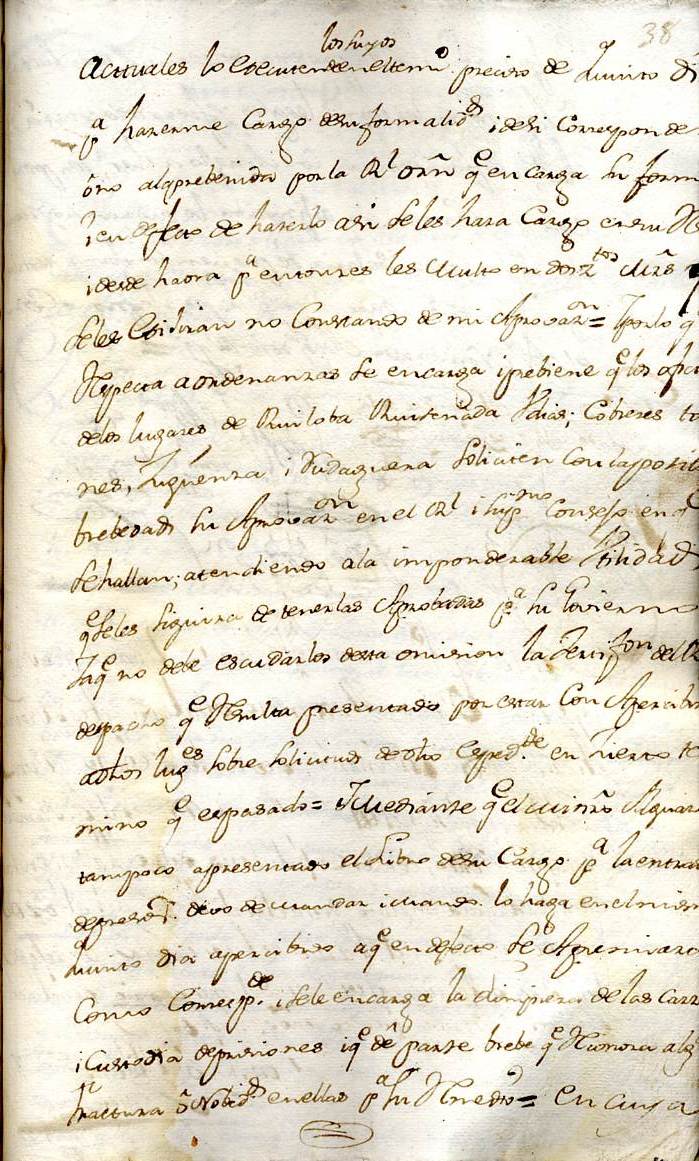 38
los suyos
actuales lo executen en el termº preciso de quinto di
pª hacerme Cargo de su formalidd i de si Corresponde
ôno ala prebenida por la Rl orñ qe encarga su form
i en efecto de hacerlo asi se les hara Cargo en su Re
i desde haora pª entonces les Multo en dos Mrs
se les Exijiran no Constando de mi Aprovazon = I por lo q
Respecta a ordenanzas se encarga i prebiene qe los
de los lugares de Ruiloba Ruisenada Cobreces to
nes, Zigüenza i Rudaguera soliciten con la posibl
brebedad su Aprovazon en el Rl i Supmo Consejo en q
se hallan; atendiendo ala imponderable Utilidad
qe se les siguira de tenerlas Aprobadas pª su Govierno
I a qe no debe escudarlos desta omision la Zertifzon del
despacho qe Resulta presentado por estar Con Apercibi
a dhos luges sobre solicitud de dho Exped.te en Zierto te
mino qe es pasado = I Mediante qe el Minrõ Alguaz
tampoco a presentado el Libro de su Cargo pª la entra
de presos devo de mandar i mando lo haga en el mism
quinto dia apercibido a qe en defecto se Apremiara
Como Corresp.de i se le encarga la limpieza de las Carz
i Custodia de prisiones i qe dé parte brebe qe Reconozca alg
fractura ô Nobedd en ellas pª su Remedio = en cuya